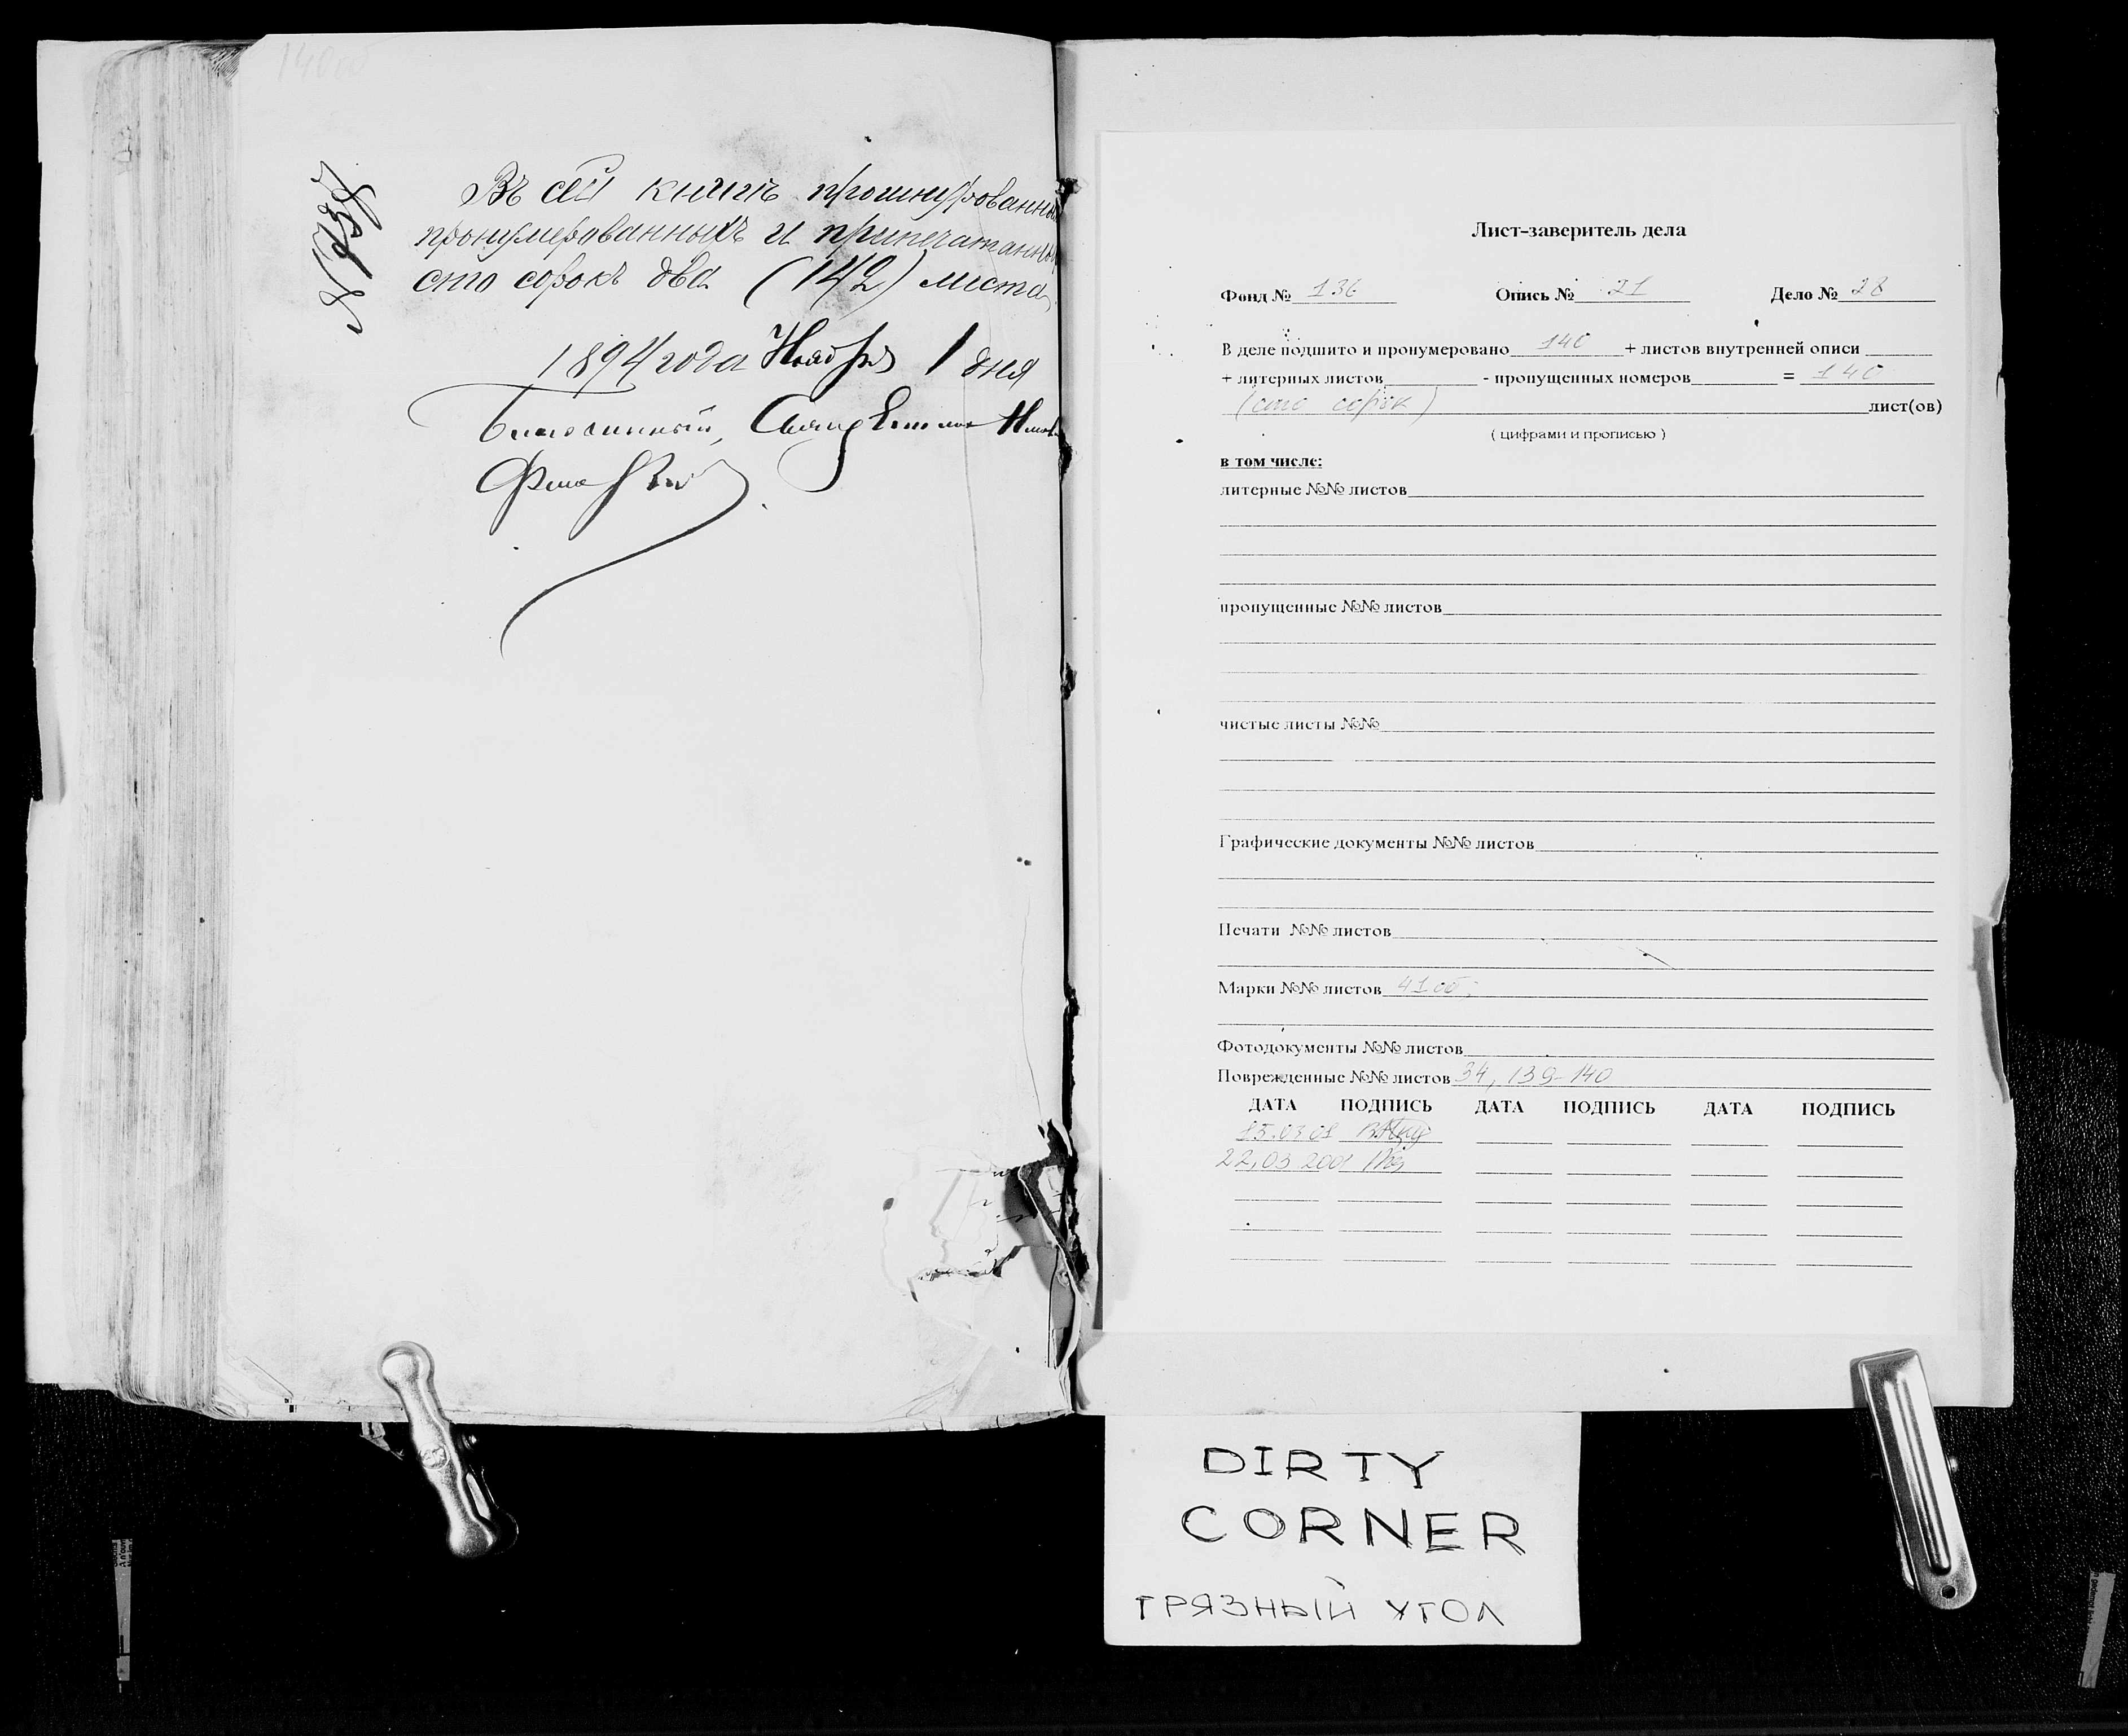 140об
Въ сей книгѣ прошнурованны
пронумерованныхъ и припечатанны
сто сорокъ два (142) листа,
1894 года Ноября 1 дня
Благочинный, Священникъ
Лист-заверитель дела
Фонд № 136 Опись № 21 Дело № 28
В деле подшито и пронумеровано 140 + листов внутренней описи
+ литерных листов - пропущенных номеров = 140
(сто сорок) лист(ов)
( цифрами и прописью )
в том числе:
литерные №№ листов
пропущенные №№ листов
чистые листы №№
Графические документы №№ листов
Печати №№ листов
Марки №№ листов 41об;
Фотодокументы №№ листов
Поврежденные №№ листов 34, 139-140
ДАТА ПОДПИСЬ ДАТА ПОДПИСЬ ДАТА ПОДПИСЬ
15.03.01
22.03.2001
DIRTY
CORNER
ГРЯЗНЫЙ УГОЛ